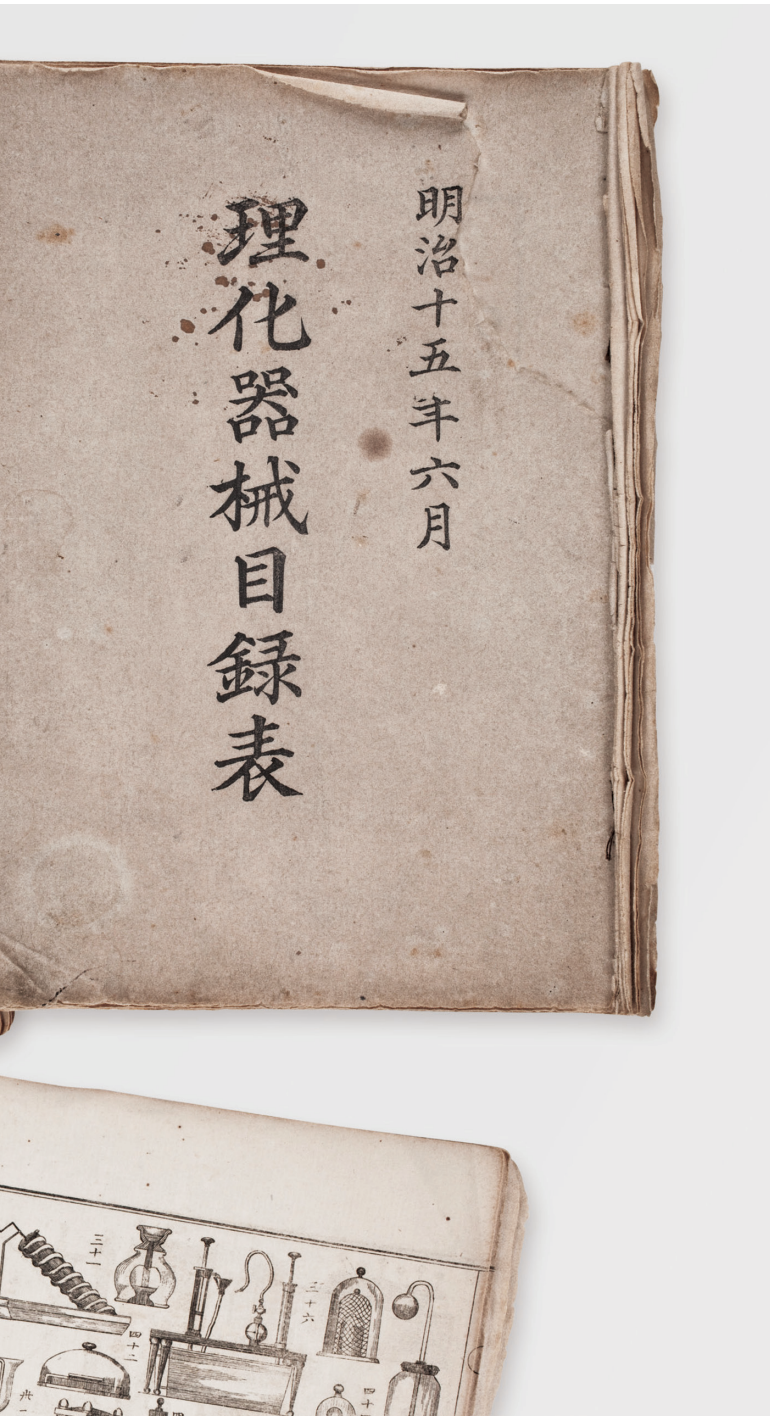 明治十五年六月
理化器械目録表
三十一
三十六
四十二